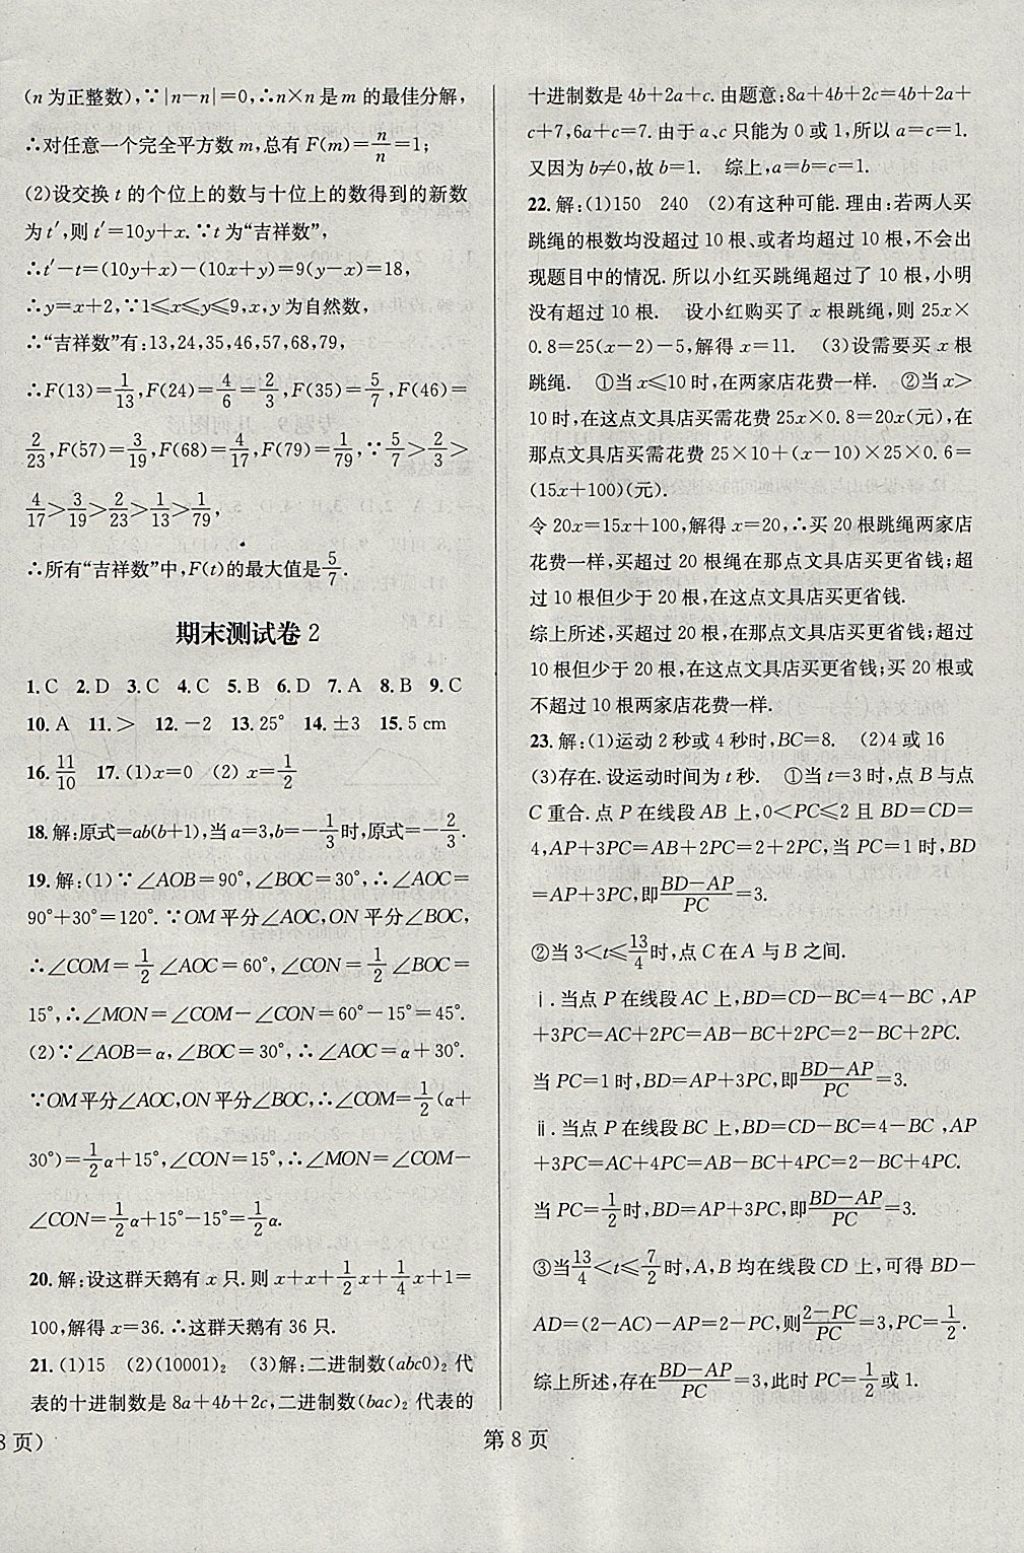 (n 为正整数),∵|n－n|＝0,∴n×n 是 m 的最佳分解,
∴对任意一个完全平方数 m,总有 F(m)＝n/n＝1;
(2)设交换 t 的个位上的数与十位上的数得到的新数
为 t′,则 t′＝10y＋x.∵t 为“吉祥数”,
∴t′－t＝(10y＋x)－(10x＋y)＝9(y－x)＝18,
∴y＝x＋2,∵1⩽x⩽y⩽9,x,y 为自然数,
∴“吉祥数”有:13,24,35,46,57,68,79,
∴F(13)＝1/13,F(24)＝4/6＝2/3,F(35)＝5/7,F(46)＝
2/23,F(57)＝3/19,F(68)＝4/17,F(79)＝1/79,∵5/7＞2/3＞
4/17＞3/19＞2/23＞1/13＞1/79,
∴所有“吉祥数”中,F(t)的最大值是5/7.
期末测试卷 2
1.C 2.D 3.C 4.C 5.B 6.D 7.A 8.B 9.C
10.A 11.＞ 12.－2 13.25° 14.±3 15.5 cm
16.11/10 17.(1)x＝0 (2)x＝1/2
18.解:原式＝ab(b＋1),当 a＝3,b＝－1/3时,原式＝－2/3.
19.解:(1)∵∠AOB＝90°,∠BOC＝30°,∴∠AOC＝
90°＋30°＝120°.∵OM 平分∠AOC,ON 平分∠BOC,
∴∠COM＝1/2∠AOC＝60°,∠CON＝1/2∠BOC＝
15°,∴∠MON＝∠COM－∠CON＝60°－15°＝45°.
(2)∵∠AOB＝α,∠BOC＝30°,∴∠AOC＝α＋30°.
∵OM平分∠AOC,ON平分∠BOC,∴∠COM＝1/2(α＋
30°)＝1/2α＋15°,∠CON＝15°,∴∠MON＝∠COM－
∠CON＝1/2α＋15°－15°＝1/2α.
20.解:设这群天鹅有 x 只.则 x＋x＋1/2x＋1/4x＋1＝
100,解得 x＝36.∴这群天鹅有 36 只.
21.(1)15 (2)(10001)₂ (3)解:二进制数(abc0)₂ 代
表的十进制数是 8a＋4b＋2c,二进制数(bac)₂ 代表的
十进制数是 4b＋2a＋c.由题意:8a＋4b＋2c＝4b＋2a＋
c＋7,6a＋c＝7.由于 a、c 只能为 0 或 1,所以 a＝c＝1.
又因为 b≠0,故 b＝1. 综上,a＝b＝c＝1.
22.解:(1)150 240 (2)有这种可能.理由:若两人买
跳绳的根数均没超过 10 根、或者均超过 10 根,不会出
现题目中的情况.所以小红买跳绳超过了 10 根,小明
没有超过 10 根. 设小红购买了 x 根跳绳,则 25x×
0.8＝25(x－2)－5,解得 x＝11. (3)设需要买 x 根
跳绳. ①当 x⩽10 时,在两家店花费一样. ②当 x＞
10 时,在这点文具店买需花费 25x×0.8＝20x(元),在
那点文具店买需花费 25×10＋(x－10)×25×0.6＝
(15x＋100)(元).
令 20x＝15x＋100,解得 x＝20,∴买 20 根跳绳两家店
花费一样,买超过 20 根绳在那点文具店买更省钱;超
过 10 根但少于 20 根,在这点文具店买更省钱.
综上所述,买超过 20 根,在那点文具店买更省钱;超过
10 根但少于 20 根,在这点文具店买更省钱;买 20 根或
不超过 10 根两家店花费一样.
23.解:(1)运动 2 秒或 4 秒时,BC＝8. (2)4 或 16
(3)存在.设运动时间为 t 秒. ①当 t＝3 时,点 B 与点
C 重合.点 P 在线段 AB 上,0＜PC⩽2 且 BD＝CD＝
4,AP＋3PC＝AB＋2PC＝2＋2PC,当 PC＝1 时,BD
＝AP＋3PC,即(BD－AP)/PC＝3.
②当 3＜t⩽13/4时,点 C 在 A 与 B 之间.
ⅰ.当点 P 在线段 AC 上,BD＝CD－BC＝4－BC,AP
＋3PC＝AC＋2PC＝AB－BC＋2PC＝2－BC＋2PC.
当 PC＝1 时,BD＝AP＋3PC,即(BD－AP)/PC＝3.
ⅱ.当点 P 在线段 BC 上,BD＝CD－BC＝4－BC,AP
＋3PC＝AC＋4PC＝AB－BC＋4PC＝2－BC＋4PC.
当 PC＝1/2时,BD＝AP＋3PC,即(BD－AP)/PC＝3.
③当13/4＜t⩽7/2时,A,B 均在线段 CD 上,可得 BD－
AD＝(2－AC)－AP＝2－PC,则(2－PC)/PC＝3,PC＝1/2.
综上所述,存在(BD－AP)/PC＝3,此时 PC＝1/2或 1.
8 页)
第 8 页